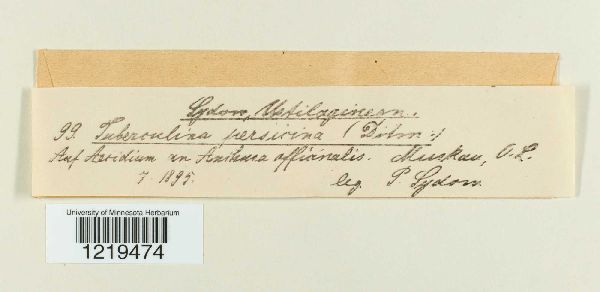 Sydow, Ustilagineen.
99. Tuberculina persicina (Ditm.)
Auf Aecidium an Anchusa officinalis. Muskau, O.L.
7. 1895. leg. P. Sydow.
University of Minnesota Herbarium
1219474